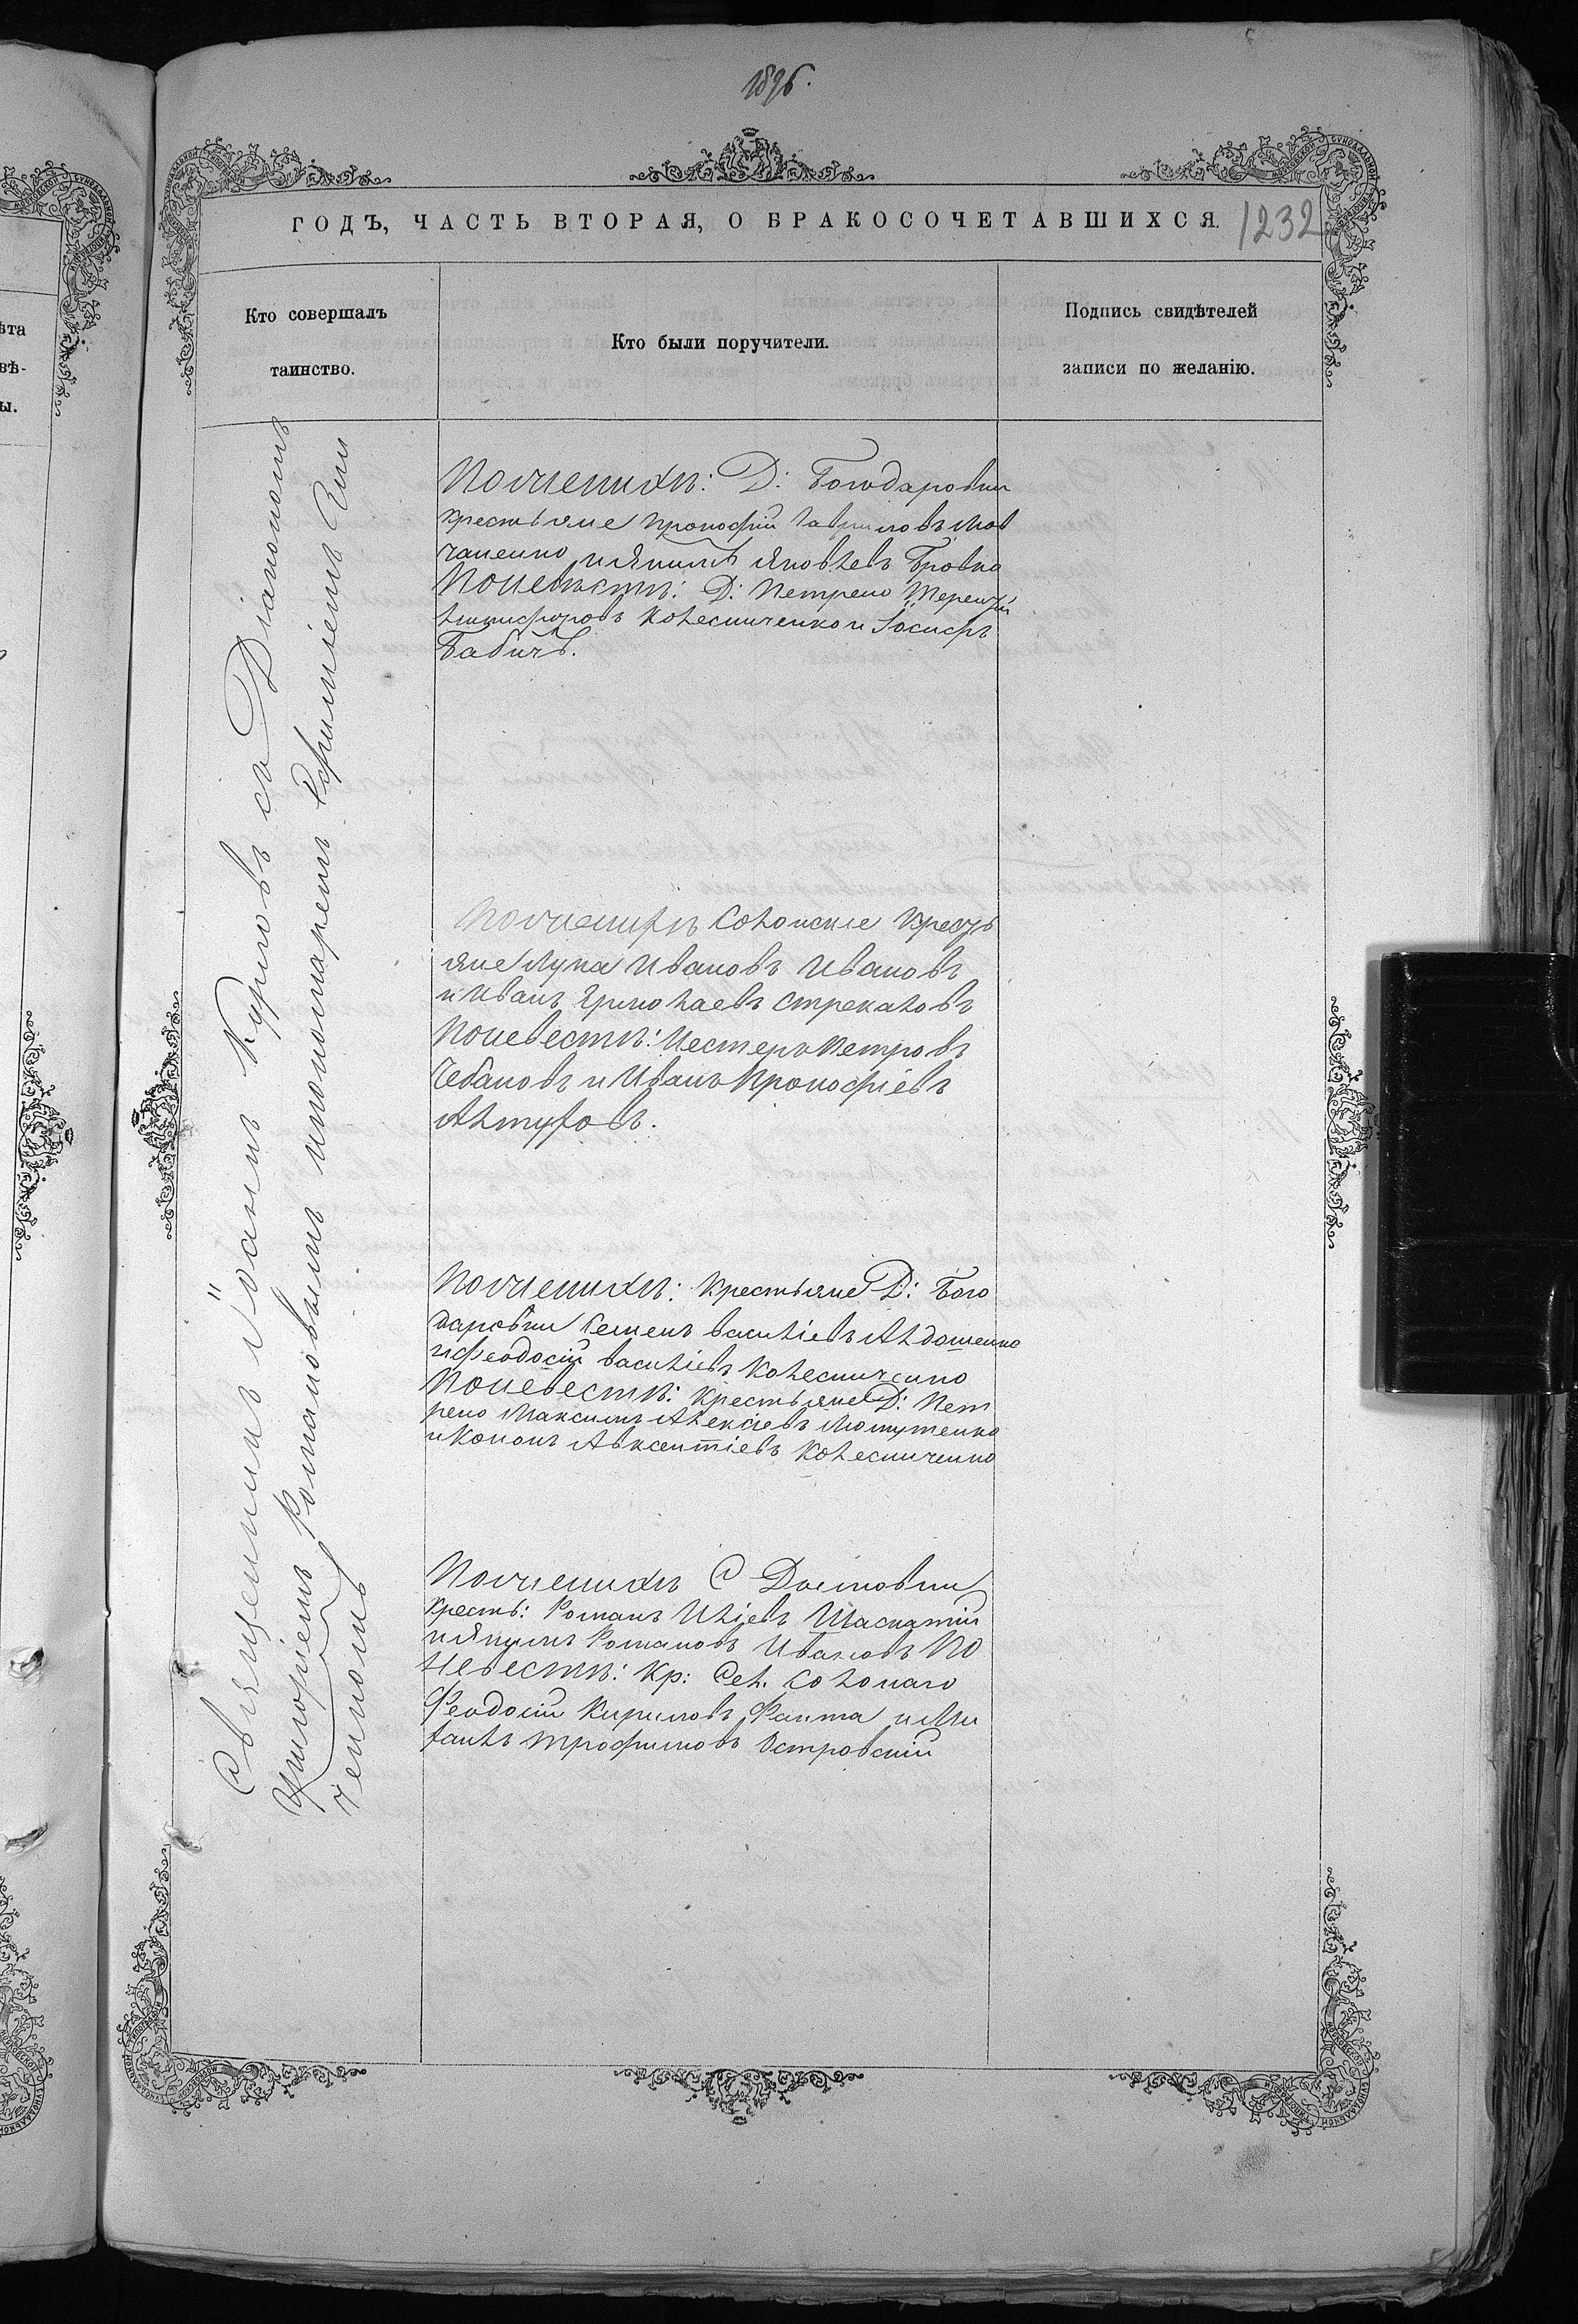 1896.
ГОДЪ, ЧАСТЬ ВТОРАЯ, О БРАКОСОЧЕТАВШИХСЯ.
1232
Кто совершалъ
таинство.
Кто были поручители.
Подпись свидѣтелей
записи по желанію.
Священникъ Іоаннъ Курловъ съ Діакономъ
Григоріемъ Романовымъ и пономаремъ Ефиміемъ
Пожениху: Д: Богодаровки
крестьяне Прокофій Гавриловъ Мов
чаненко и Якимъ Яковлевъ Бровко
Поневѣстѣ: Д: Петрено Терентій
Никифоровъ Колесниченко и Іосифъ
Бабичъ.
Поженихѣ Солонскіе Кресть
яне Лука Ивановъ Ивановъ
и Иванъ Ермолаевъ Стрекаловъ
Поневестѣ: Нестеръ Петровъ
Чебановъ и Иванъ Прокофіевъ
Алтуховъ.
Поженихѣ: Крестьяне Д: Бого
даровки Семенъ Василіевъ Авдошенко
и Феодосій Василіевъ Колесниченко
Поневестѣ: Крестьяне Д: Пет
рено Максимъ Алексіевъ
и Кононъ Авксентіевъ Колесниченко
Поженихѣ С
кресть: Романъ Иліевъ
и Якимъ Романовъ Ивановъ По
невестѣ: Кр: Сел. Солонаго
Феодосій Кириловъ и Ми
хаилъ Трофимовъ Островскій